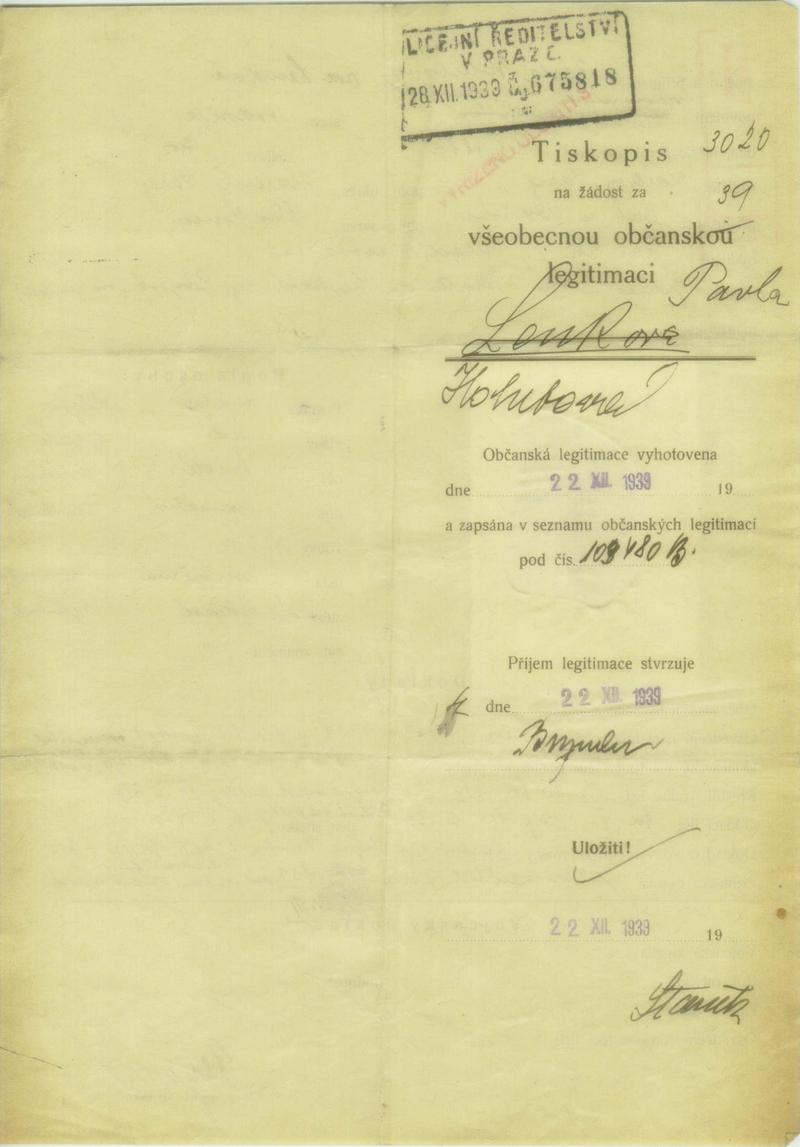 LICEJNÍ ŘEDITELSTVÍ
V PRAZE
28 XII. 1939 Čj. 675818
Tiskopis 3020
na žádost za 39
všeobecnou občanskou
legitimaci Pavla
Lenkova
Holubová
Občanská legitimace vyhotovena
dne 22 XII. 1939 19
a zapsána v seznamu občanských legitimací
pod čís. 109480 B.
Příjem legitimace stvrzuje
dne 22 XII. 1939
Uložiti!
22 XII. 1939 19